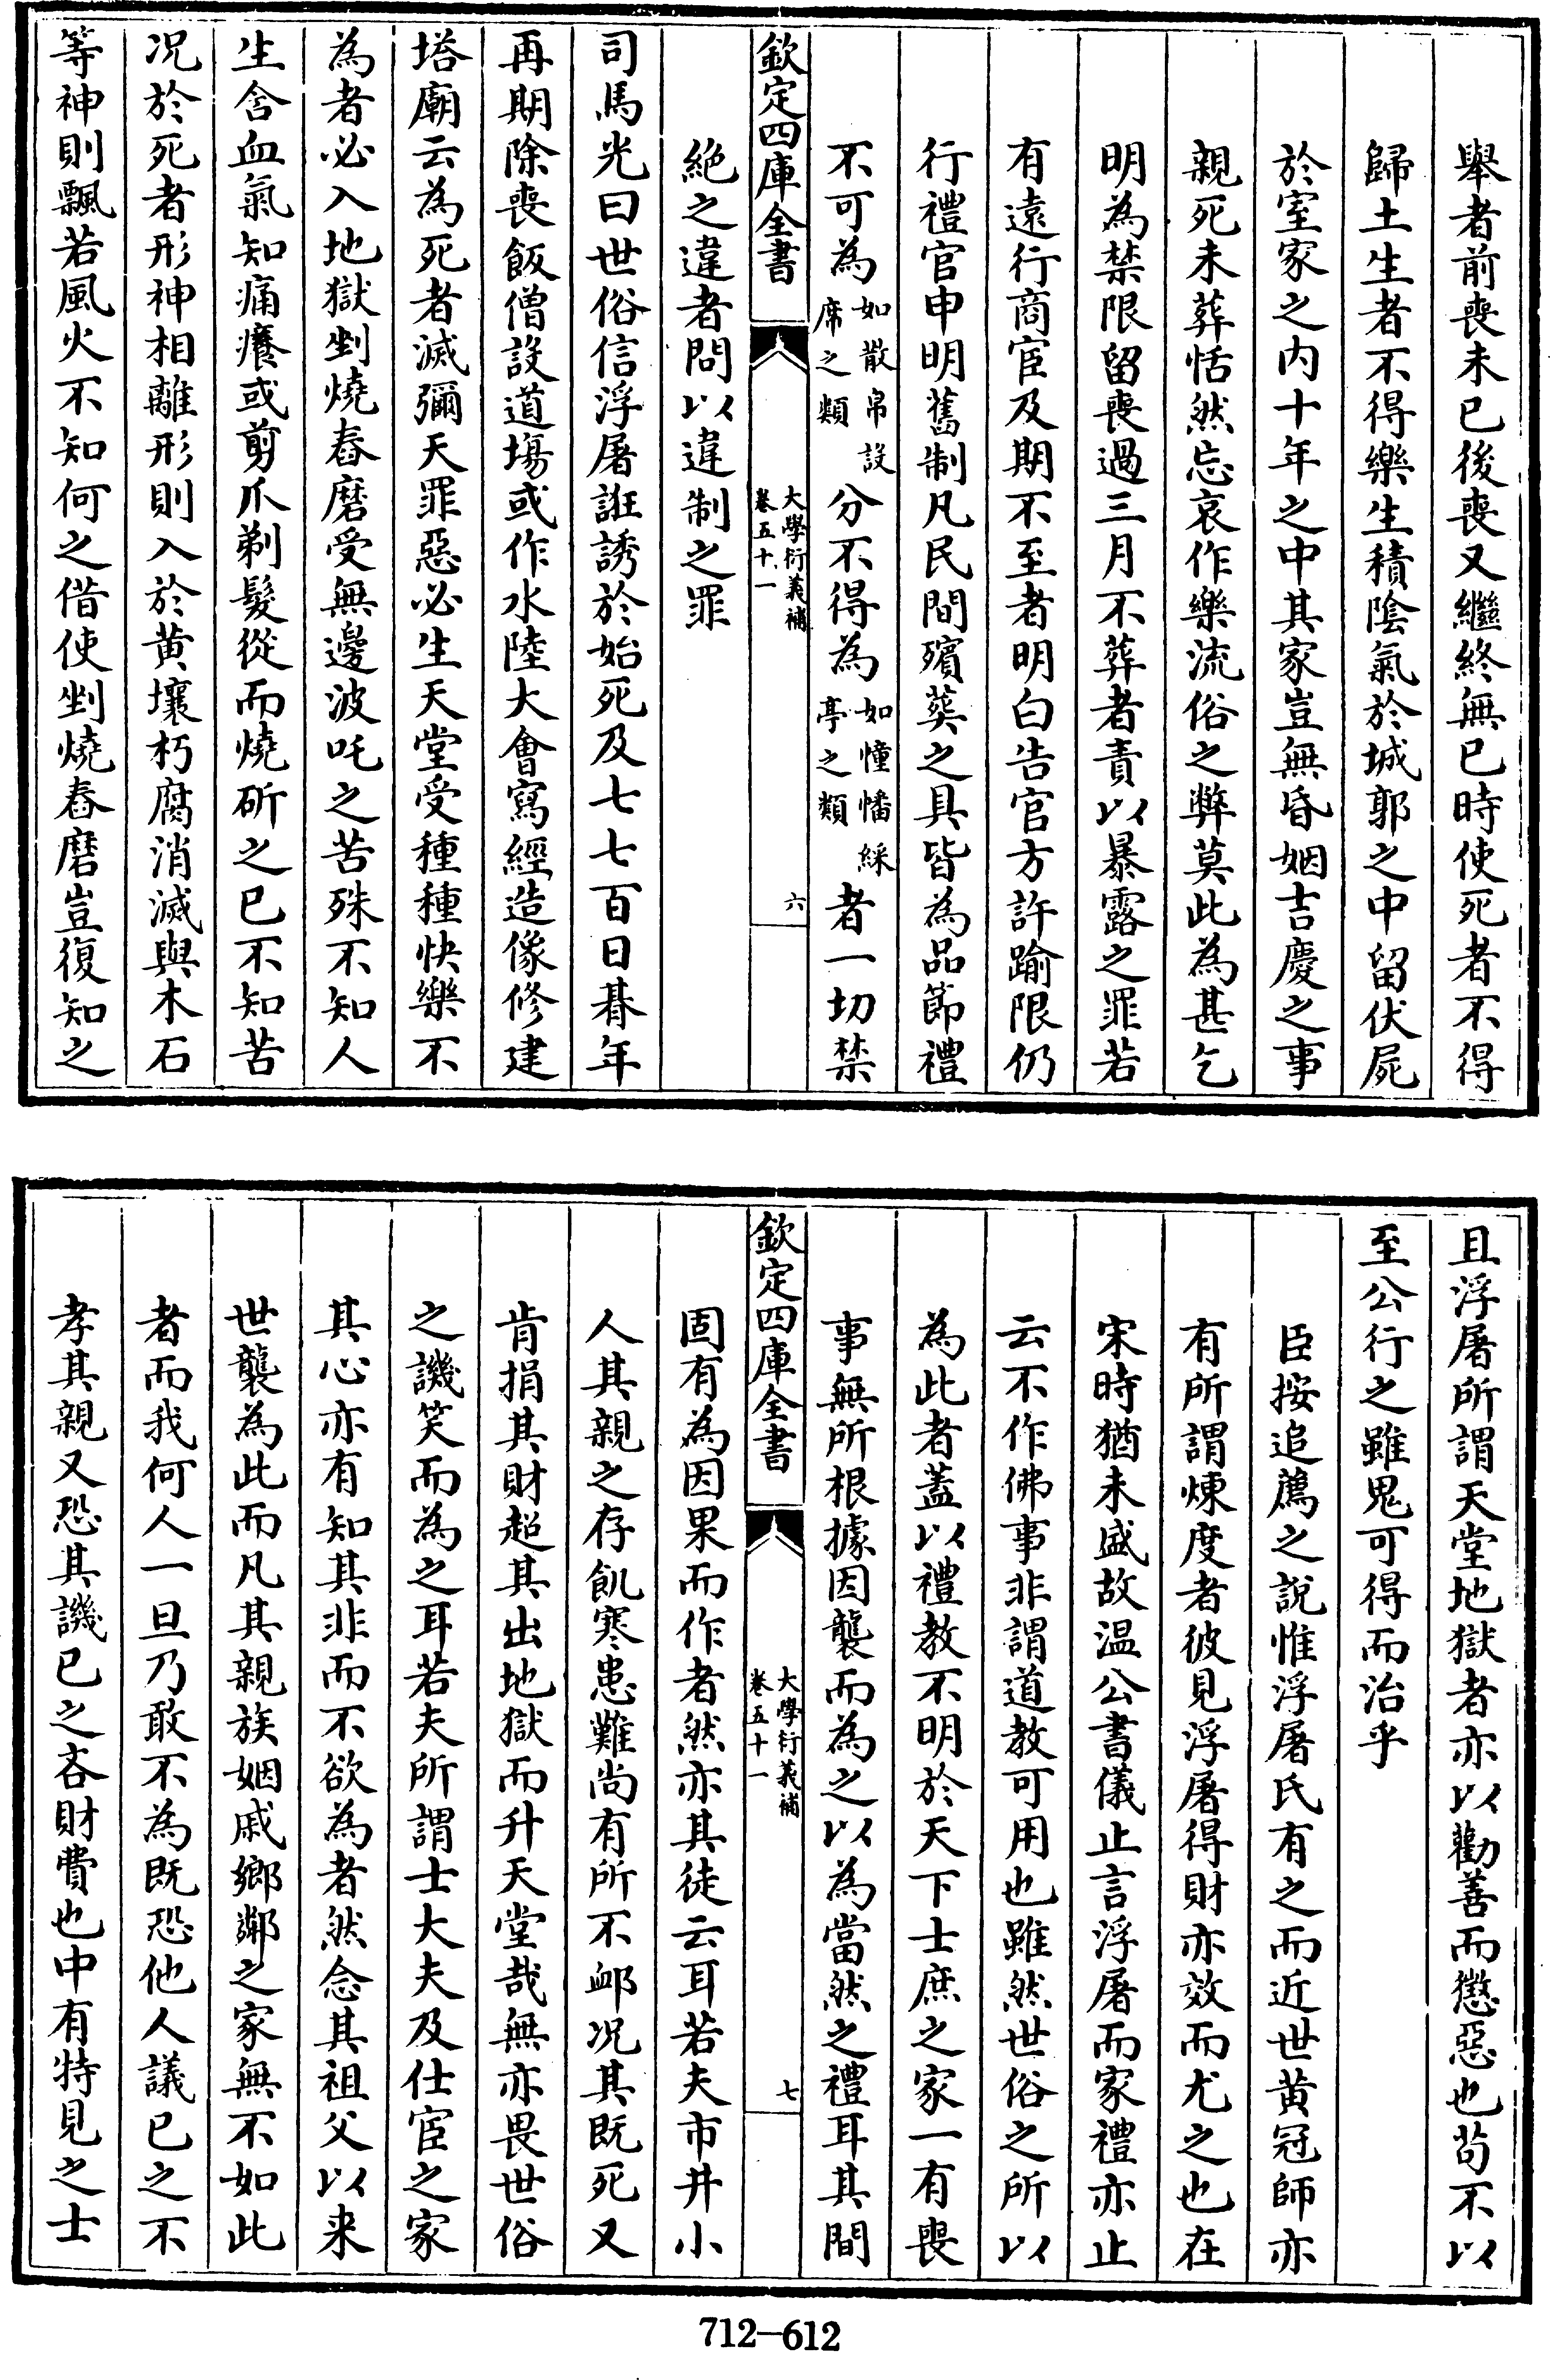 舉者前喪未已後喪又繼終無已時使死者不得
歸土生者不得樂生積陰氣於城郭之中留伏屍
於室家之内十年之中其家豈無昏姻吉慶之事
親死未葬恬然忘哀作樂流俗之弊莫此為甚乞
明為禁限留喪過三月不葬者責以暴露之罪若
有遠行商宦及期不至者明白告官方許踰限仍
行禮官申明舊制凡民間殯葬之具皆為品節禮
不可為如散帛設席之類分不得為如幢幡綵亭之類者一切禁
欽定四庫全書
大學衍義補
卷五十一
六
絶之違者問以違制之罪
司馬光曰世俗信浮屠誑誘於始死及七七百日朞年
再期除喪飯僧設道塲或作水陸大會寫經造像修建
塔廟云為死者滅彌天罪惡必生天堂受種種快樂不
為者必入地獄剉燒舂磨受無邊波吒之苦殊不知人
生含血氣知痛癢或剪爪剃髮從而燒斫之已不知苦
况於死者形神相離形則入於黄壤朽腐消滅與木石
等神則飄若風火不知何之借使剉燒舂磨豈復知之
且浮屠所謂天堂地獄者亦以勸善而懲惡也茍不以
至公行之雖鬼可得而治乎
臣按追薦之說惟浮屠氏有之而近世黄冠師亦
有所謂煉度者彼見浮屠得財亦效而尤之也在
宋時猶未盛故温公書儀止言浮屠而家禮亦止
云不作佛事非謂道教可用也雖然世俗之所以
為此者蓋以禮教不明於天下士庶之家一有喪
事無所根據因襲而為之以為當然之禮耳其間
欽定四庫全書
大學衍義補
卷五十一
七
固有為因果而作者然亦其徒云耳若夫市井小
人其親之存飢寒患難尚有所不卹况其既死又
肯捐其財超其出地獄而升天堂哉無亦畏世俗
之譏笑而為之耳若夫所謂士大夫及仕宦之家
其心亦有知其非而不欲為者然念其祖父以来
世襲為此而凡其親族姻戚鄉鄰之家無不如此
者而我何人一旦乃敢不為既恐他人議已之不
孝其親又恐其譏已之吝財費也中有特見之士
712-612